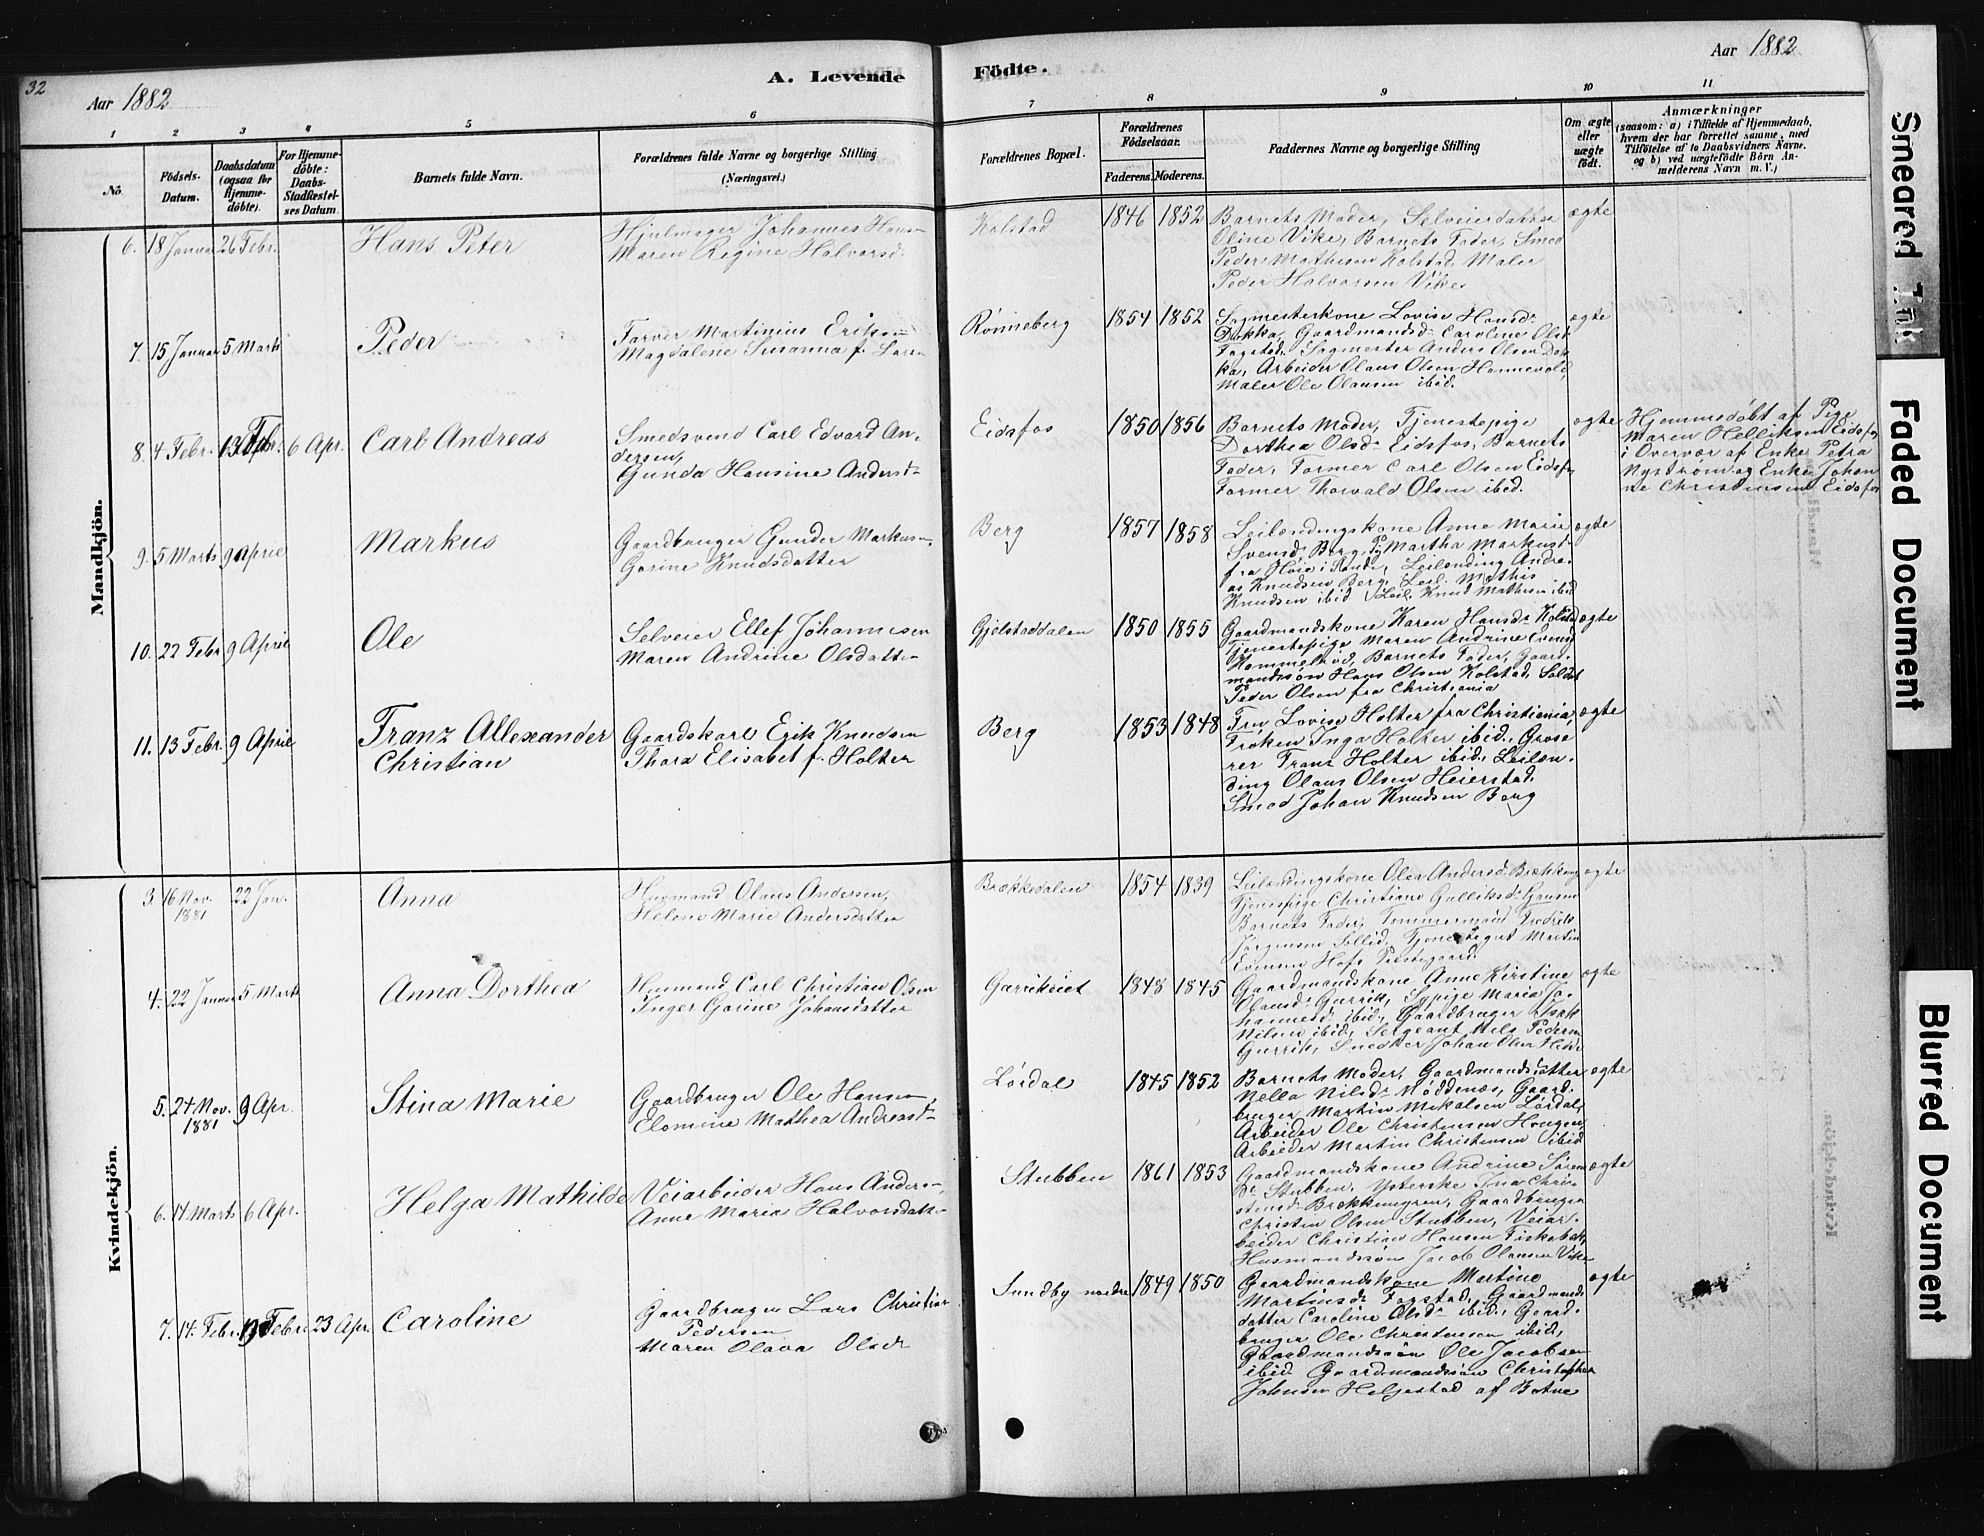 32
Aar 1882
A. Levende
Födte.
Aar 1882
1 2 3 4 5 6 7 8 9 10 11
No.
Födsels-
Datum.
Daabsdatum
(ogsaa for
Hjemme-
döbte).
For Hjemme-
döbte:
Daabs-
Stadfæstel-
ses Datum.
Barnets fulde Navn.
Forældrenes fulde Navne og borgerlige Stilling
(Næringsvei.)
Forældrenes Bopæl.
Forældrenes
Födselsaar.
Faderens. Moderens.
Faddernes Navne og borgerlige Stilling
Om ægte
eller
uægte
födt.
Anmærkninger
(saasom: a) i Tilfælde af Hjemmedaab,
hvem der har forrettet samme, med
Tilföielse af to Daabsvidners Navne,
og b) ved uægtefödte Börn An-
melderens Navn m. V.)
Mandkjön.
6. 18 Januar 26 Febr.
Hans Peter
Hjulmager Johannes Hans-
Maren Regine Halvorsd.
Kolstad
1846 1852
Barnets Moder, Selveierdatter
Oline Vike, Barnets Fader, Smed
Peder Mathesen Kolstad, Maler
Peder Halvorsen Vike
ægte
7. 15 Januar 5 Marts
Peder
Farver Martinius Eriksen
Magdalene Susanna f. Lars-
Rønneberg
1854 1852
Sagmesterkone Lovise Hansd-
Dokka, Gaardmandsd- Caroline Olsd-
Fagstad, Sagmester Anders Olsen Dok-
ka, Arbeider Olaus Olsen Hannevold,
Maler Ole Olausen ibid.
ægte
8. 4 Febr. 13 Febr. 6 Apr.
Carl Andreas
Smedsvend Carl Edvard An-
dersen,
Gunda Hansine Andersd-
Eidsfos
1850 1856
Barnets Moder, Tjenestepige
Dorthea Olsd- Eidsfos, Barnets
Fader, Former Carl Olsen Eidsfos
Former Thorvald Olsen ibid.
ægte
Hjemmedøbt af Pige
Maren Helliksen Eidsfos
i Overvær af Enke Petra
Nystrøm og Enke Johan
ne Christensen Eidsfos
9. 5 Marts 9 April
Markus
Gaardbruger Gunder Markus-
Gorine Knudsdatter
Berg
1857 1858
Leilendingskone Anne Marie
Svensd- Berg, Pg Martha Markusd-
fra Høie i Sande, Leilending Andre-
as Knudsen Berg, Leil. Mathis
Knudsen ibid Leil. Knud Mathisen ibid
ægte
10. 22 Febr 9 April
Ole
Selveier Ellef Johannesen
Maren Andrine Olsdatter
Gjelstaddalen
1850 1855
Gaardmandskone Karen Hansd- Kolstad
Tjenestepige Maren Andrine Evensd
Hammelrød, Barnets Fader, Gaard-
mandssøn Hans Olsen Kolstad, Soldat
Peder Olsen fra Christiania
ægte
11. 13 Febr. 9 April
Franz Allexander
Christian
Gaardskarl Erik Knudsen
Thora Elisabet f. Holter
Berg
1853 1848
Fru Lovise Holter fra Christiania,
Frøken Inga Holter ibid, Grose
rer Franz Holter ibid, Leilen-
ding Olaus Olsen Heierstad,
Smed Johan Knudsen Berg
ægte
Kvindekjön.
3. 16 Nov. 22 Jan.
1881
Anna
Husmand Olaus Andersen,
Helene Marie Andersdatter
Brækkedalen
1854 1839
Leilendingskone Olea Andersd-
Tjenespige Christiane Gulliksd-
Barnets Fader, Tømmermand Fredrik
Jørgensen Sollid, Tjenestegut Martin
Evensen Hofs Prestegaard
ægte
4. 22 Januar 5 Marts
Anna Dorthea
Husmand Carl Christian Olsen
Inger Gorine Johansdatter
Garrikeiet
1848 1845
Gaardmandskone Anne Kirstine
Olausd- Gurrik, Sypige Maria Jo-
hannesd- ibid, Gaardbruger Isak
Nilsen ibid, Sergeant Nils Pedersen
Gurrik, Snedker Johan Olsen
ægte
5. 24 Nov. 9 Apr.
1881
Stina Marie
Gaardbruger Ole Hansen,
Elomine Mathea Andreasd-
Lørdal
1845 1852
Barnets Moder, Gaardmandsdatter
Nella Nilsd- Nøddenæs, Gaard-
bruger Martin Mikalsen Lørdal,
Arbeider Ole Christensen Haugen
Arbeider Martin Christensen ibid
ægte
6. 14 Marts 6 Apr.
Helga Mathilde
Veiarbeider Hans Anders-,
Anne Maria Halvorsdatte-
Stubben
1861 1853
Gaardmandskone Andrine Søren
Dr Stubben, Ysterske Tina Chris-
tensd- Brekkemyren, Gaardbruger
Christen Olsen Stubben, Veiar-
beider Christian Hansen Fiskebek,
Husmandssøn Jacob Olausen Vike
ægte
7. 14. Febr. 19 Febr 23 Apr.
Caroline
Gaardbruger Lars Christian
Pedersen
Maren Olava Olsdr
Sundby nordre
1849 1850
Gaardmandskone Martine
Martinsd- Fagstad, Gaardmands
datter Caroline Olsd- ibid, Gaard-
bruger Ole Christensen ibid,
Gaardmandssøn Ole Jacobsen
ibid Gaardmandssøn Christopher
Johnsen Helgestad af Botne
ægte
Smeared Ink
Faded Document
Blurred Document